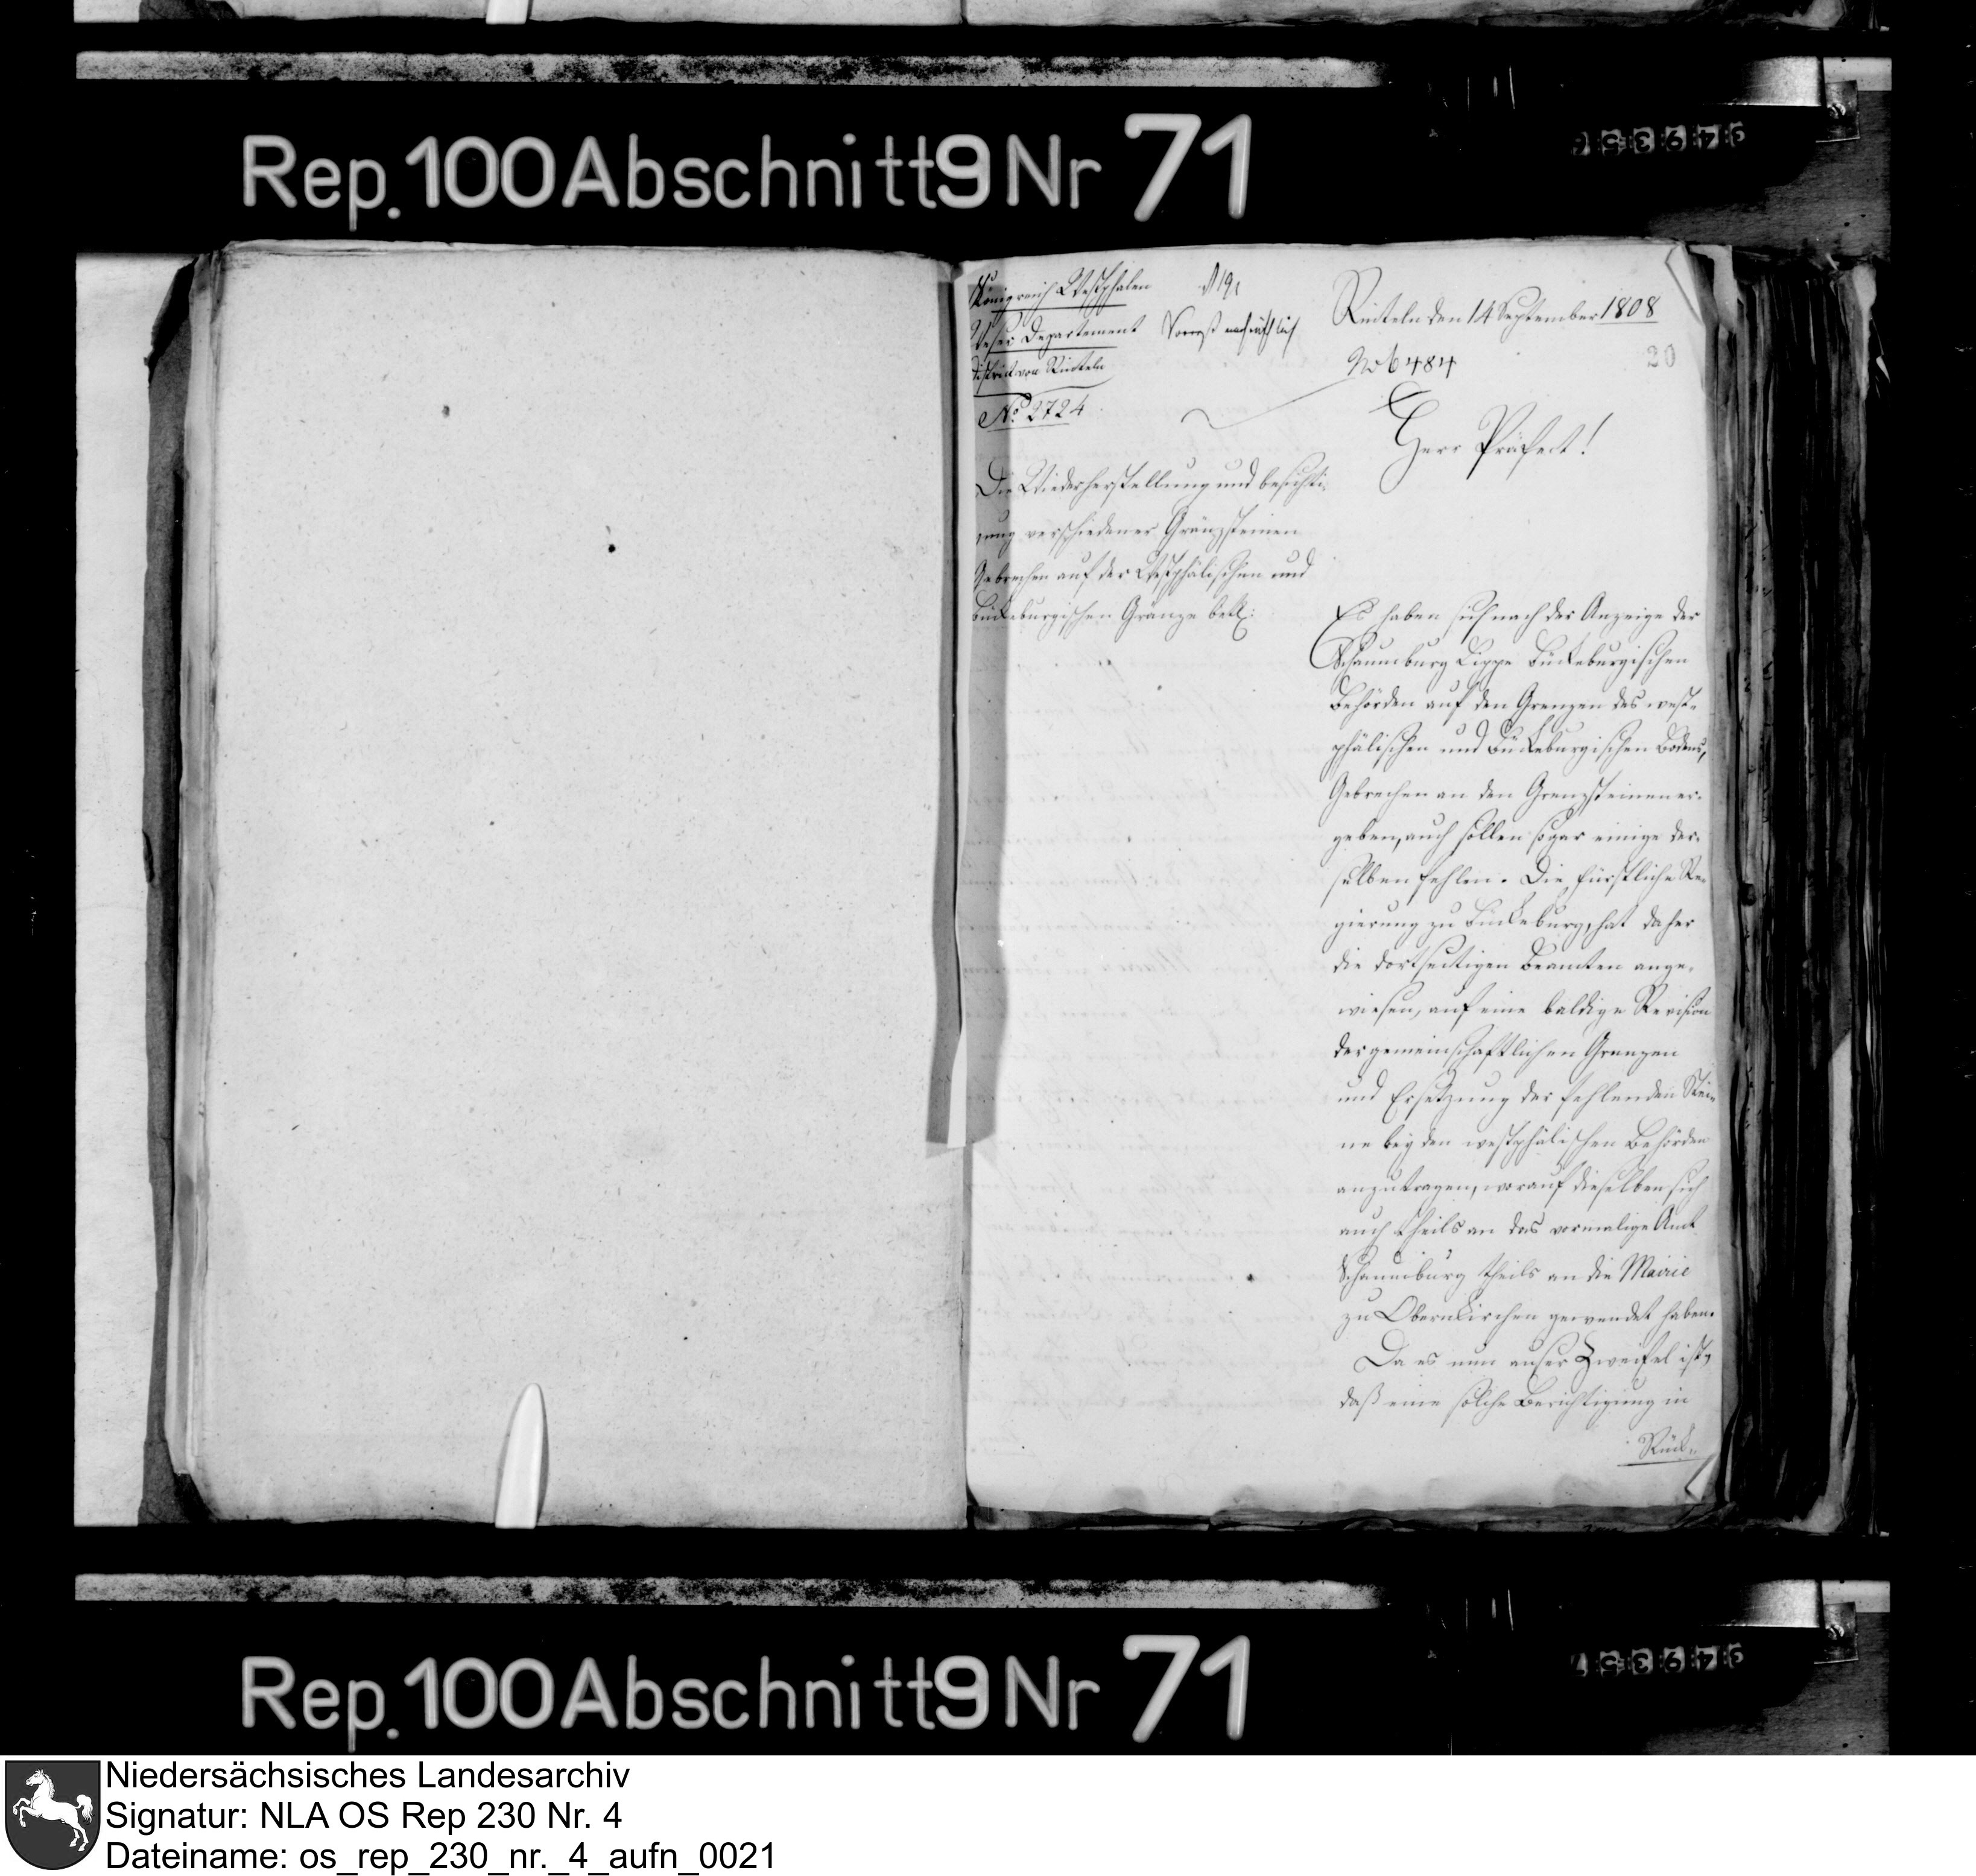 Rep. 100 Abschnitt 9 Nr 71
Königreich Westphalen
Weser Departement
District von Rinteln
No. 2724
Rinteln den 14 September 1808
No 6484
20
Herr Präfect!
Die Wiederherstellung und besichti-
gung verschiedener Gränzsteinen
Gebrechen auf der Westphälischen und
Bückeburgischen Gränze betr:
Es haben sich nach der Anzeige der
Schaumburg Lippe Bückeburgischen
Behörden auf den Grenzen des west-
phälischen und Bückeburgischen Bodens,
Gebrechen an den Grenzsteinen er-
geben, auch sollen sogar einige der-
selben fehlen. Die fürstliche Re-
gierung zu Bückeburg, hat daher
die dortseitigen Beamten ange-
wiesen, auf eine baldige Revision
der gemeinschaftlichen Grenzen
und Ersetzung der fehlenden Stei-
ne bey den westphälischen Behörden
anzutragen, worauf dieselben sich
auch theils an das vormalige Amt
Schaumburg theils an die Mairie
zu Obernkirchen gewendet haben.
Da es nun auser Zweifel ist,
daß eine solche Berichtigung in
Rück-
Rep. 100 Abschnitt 9 Nr 71
Niedersächsisches Landesarchiv
Signatur: NLA OS Rep 230 Nr. 4
Dateiname: os_rep_230_nr._4_aufn_0021